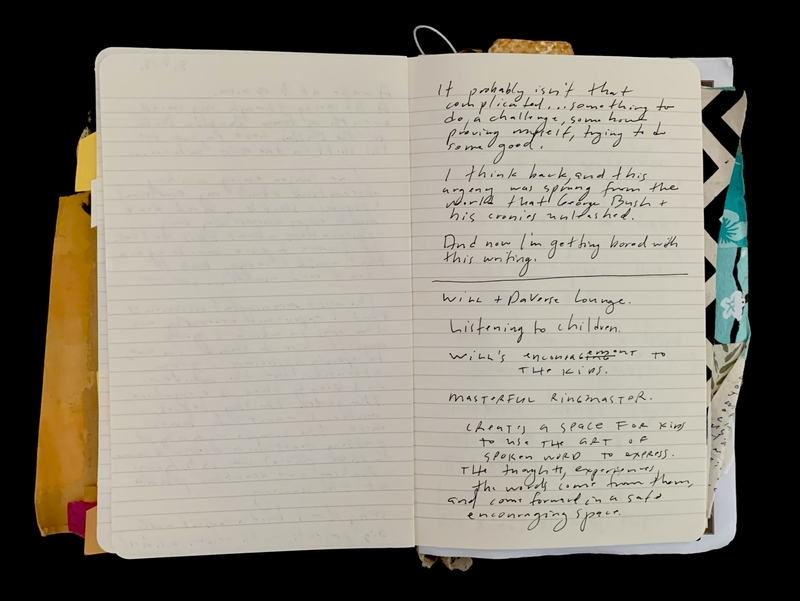 It probably isn't that
complicated...something to
do, a challenge, some how
proving myself, trying to do
some good.
I think back, and this
urgency was sprung from the
world that George Bush +
his cronies unleashed.
And now I'm getting bored with
this writing.
WILL + DaVerse Lounge.
Listening to children.
WILL'S encouragement TO
THE KIDS.
MASTERFUL RINGMASTER.
CREATES A SPACE FOR KIDS
TO USE THE ART OF
SPOKEN WORD TO EXPRESS.
THE thoughts, experiences,
the words come from them,
and come forward in a safe
encouraging space.